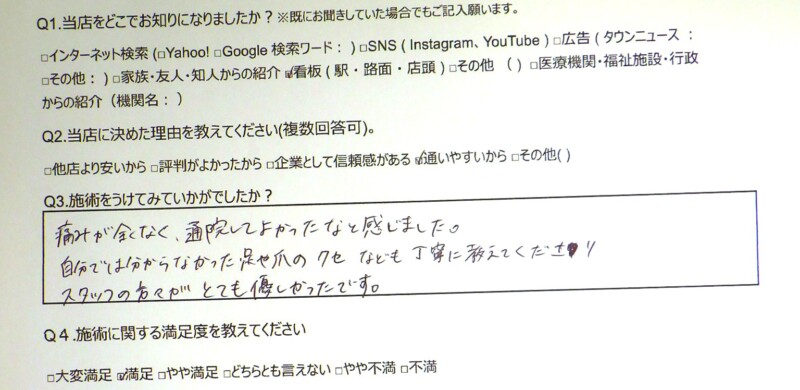 Q1.当店をどこでお知りになりましたか？※既にお聞きしていた場合でもご記入願います。
□インターネット検索 (□Yahoo! □Google 検索ワード： ) □SNS ( Instagram、YouTube ) □広告 ( タウンニュース ：
□その他： ) □家族・友人・知人からの紹介 ☑看板 ( 駅・路面・店頭 ) □その他 ( ) □医療機関・福祉施設・行政
からの紹介（機関名： ）
Q2.当店に決めた理由を教えてください(複数回答可)。
□他店より安いから □評判がよかったから □企業として信頼感がある ☑通いやすいから □その他( )
Q3.施術をうけてみていかがでしたか？
痛みが全くなく、通院してよかったなと感じました。
自分では分からなかった足や爪のクセなども丁寧に教えてくださり
スタッフの方々がとても優しかったです。
Q４.施術に関する満足度を教えてください
□大変満足 ☑満足 □やや満足 □どちらとも言えない □やや不満 □不満